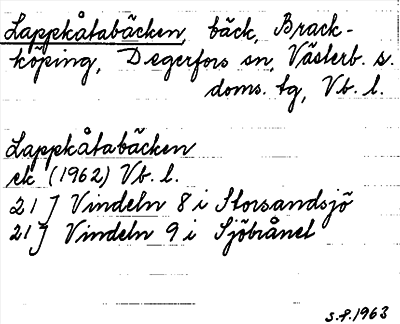 Lappkåtabäcken, bäck, Brack-
köping, Degerfors sn, Västerb. s.
doms. tg, Vb. l.
Lappkåtabäcken
ek (1962) Vb. l.
21 J Vindeln 8 i Storsandsjö
21 J Vindeln 9 i Sjöbrånet
S.P. 1963